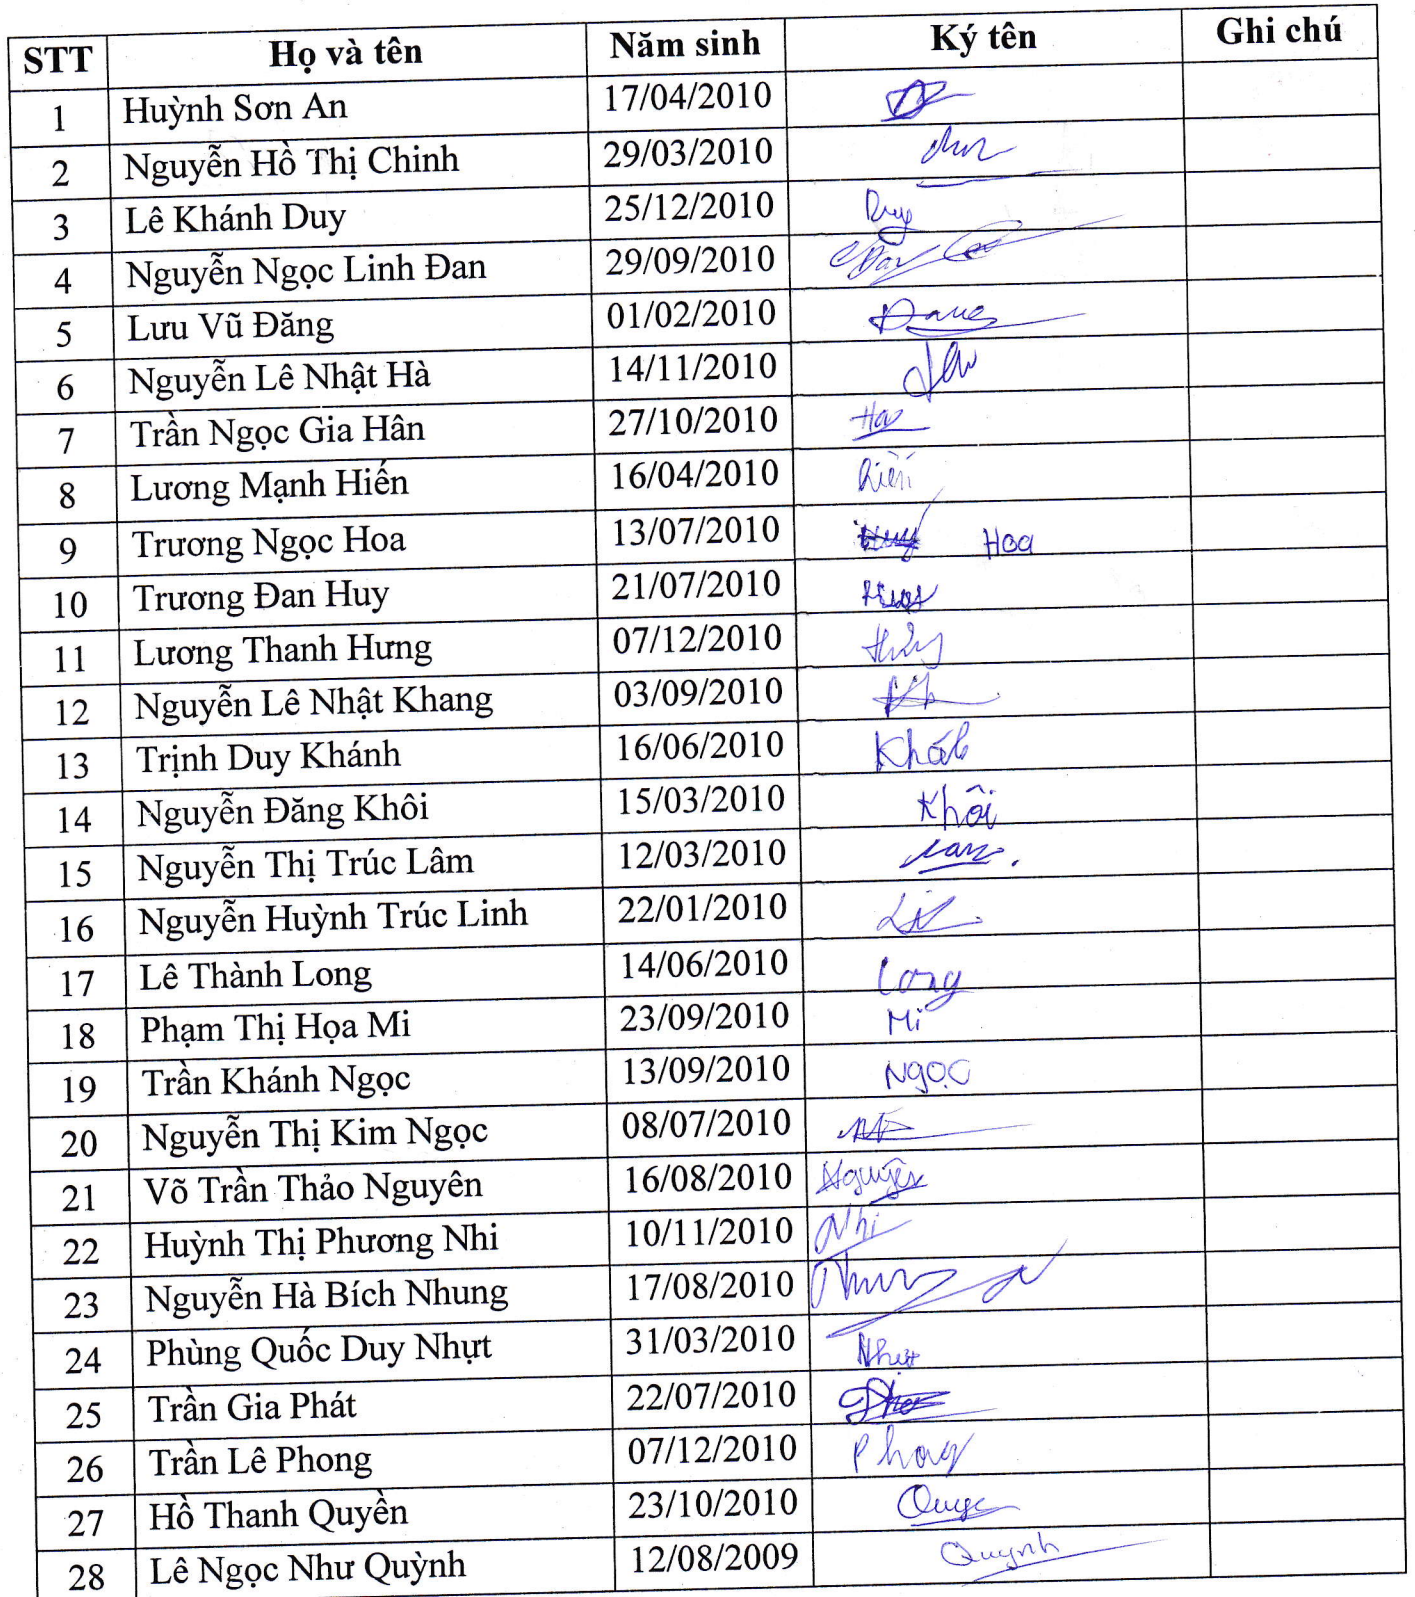 STT Họ và tên Năm sinh Ký tên Ghi chú
1 Huỳnh Sơn An 17/04/2010
2 Nguyễn Hồ Thị Chinh 29/03/2010
3 Lê Khánh Duy 25/12/2010 Duy
4 Nguyễn Ngọc Linh Đan 29/09/2010
5 Lưu Vũ Đăng 01/02/2010
6 Nguyễn Lê Nhật Hà 14/11/2010
7 Trần Ngọc Gia Hân 27/10/2010
8 Lương Mạnh Hiến 16/04/2010
9 Trương Ngọc Hoa 13/07/2010 Hoa
10 Trương Đan Huy 21/07/2010
11 Lương Thanh Hưng 07/12/2010
12 Nguyễn Lê Nhật Khang 03/09/2010
13 Trịnh Duy Khánh 16/06/2010
14 Nguyễn Đăng Khôi 15/03/2010 Khôi
15 Nguyễn Thị Trúc Lâm 12/03/2010
16 Nguyễn Huỳnh Trúc Linh 22/01/2010
17 Lê Thành Long 14/06/2010 Long
18 Phạm Thị Họa Mi 23/09/2010 Mi
19 Trần Khánh Ngọc 13/09/2010 Ngọc
20 Nguyễn Thị Kim Ngọc 08/07/2010
21 Võ Trần Thảo Nguyên 16/08/2010
22 Huỳnh Thị Phương Nhi 10/11/2010 Nhi
23 Nguyễn Hà Bích Nhung 17/08/2010
24 Phùng Quốc Duy Nhựt 31/03/2010 Nhựt
25 Trần Gia Phát 22/07/2010
26 Trần Lê Phong 07/12/2010 Phong
27 Hồ Thanh Quyền 23/10/2010
28 Lê Ngọc Như Quỳnh 12/08/2009 Quynh